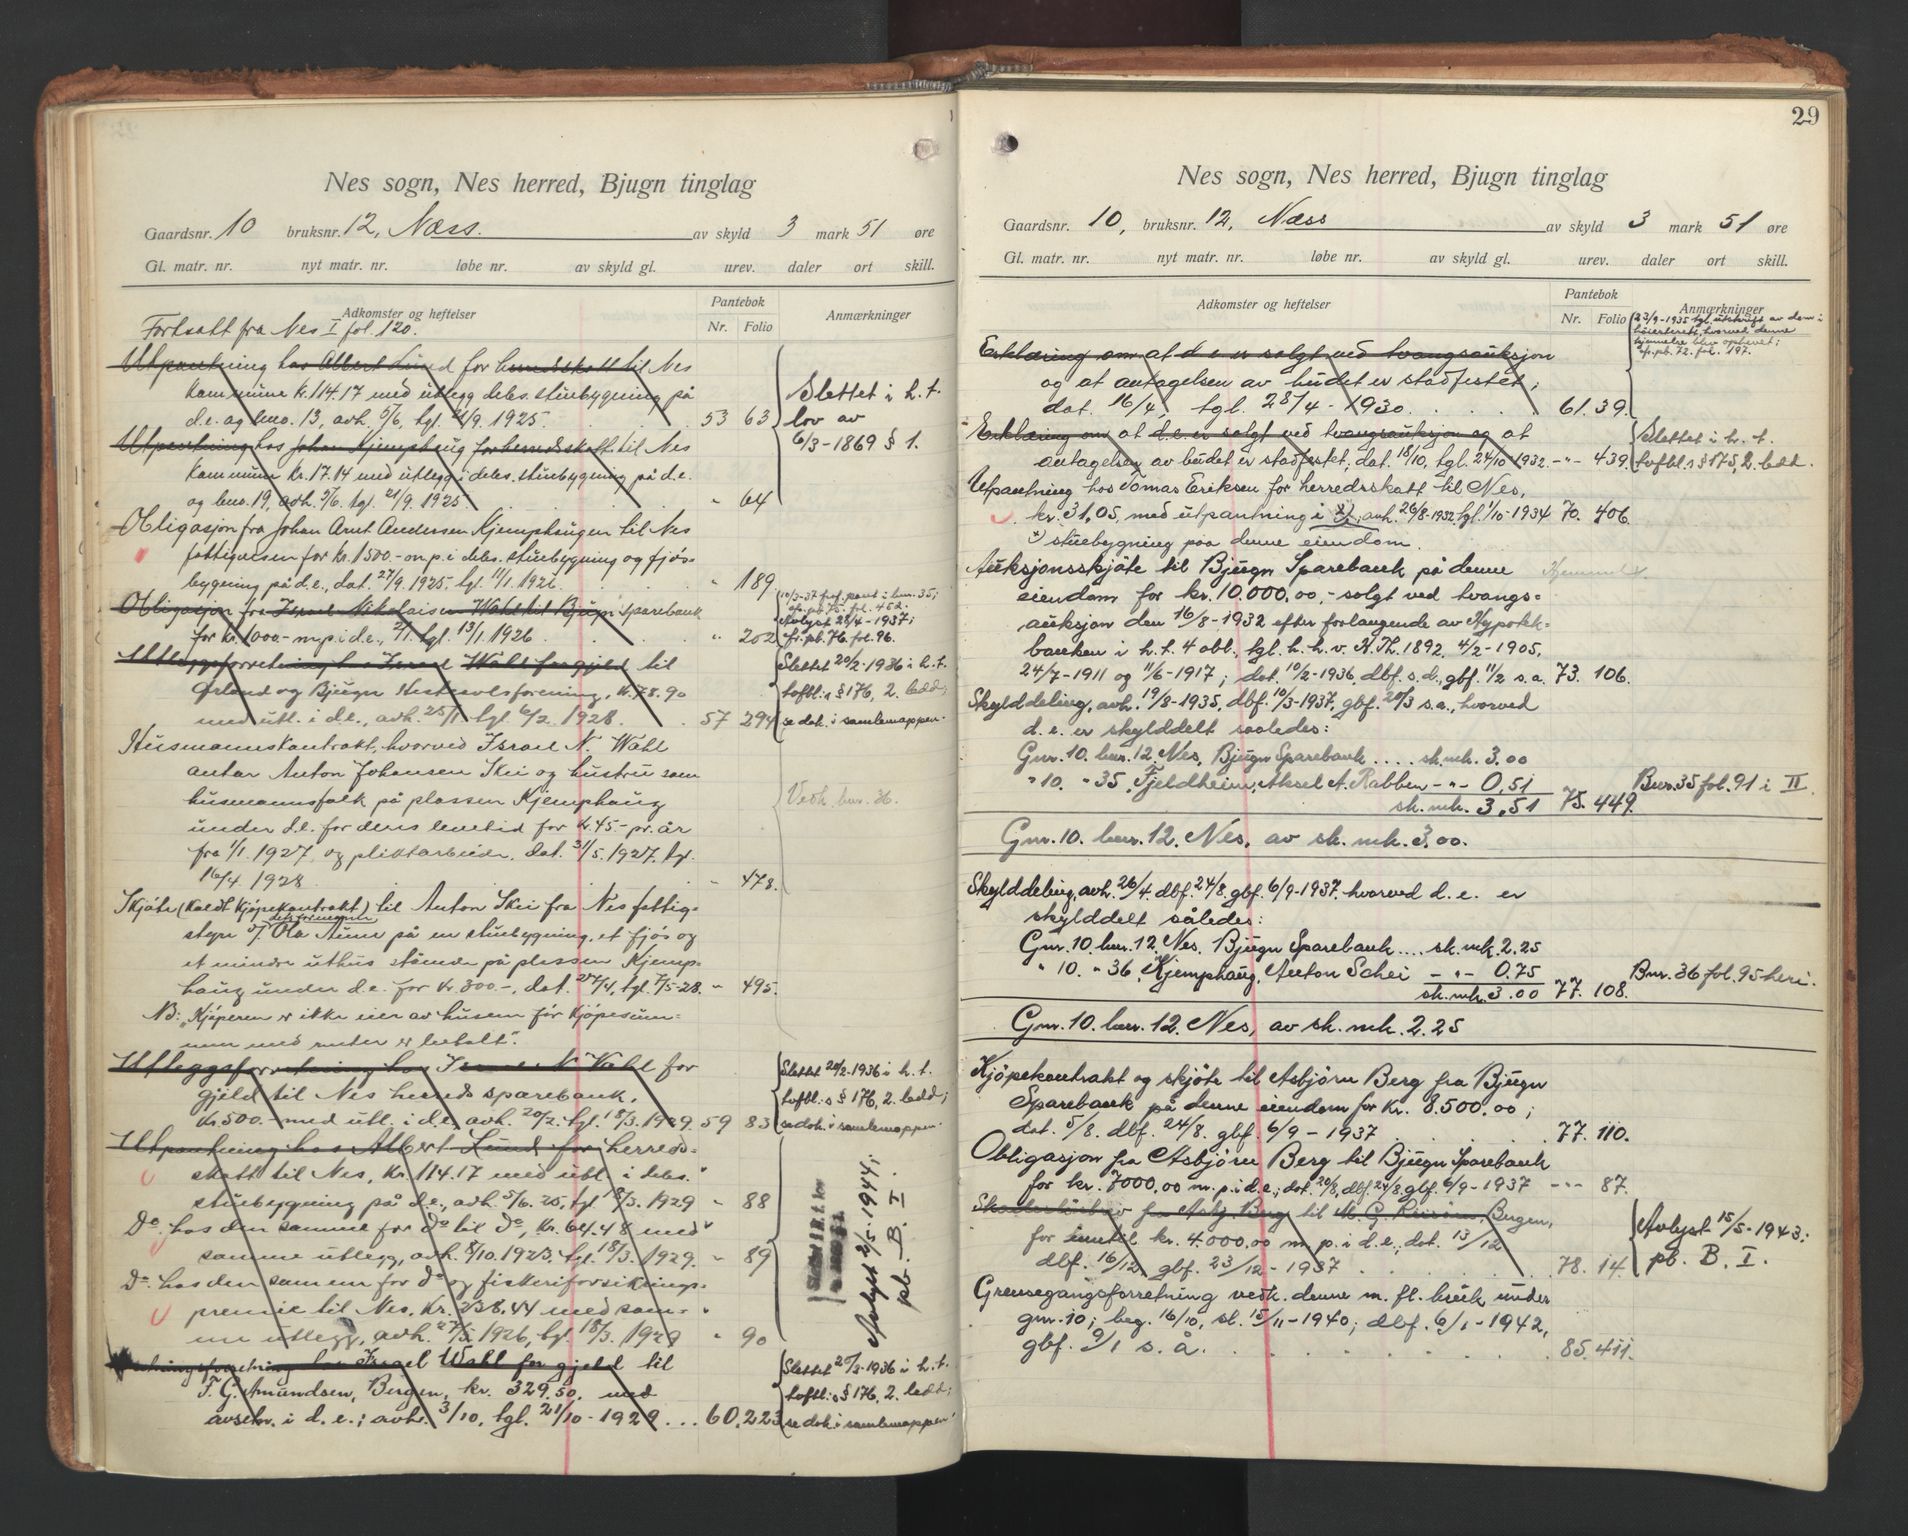 Nes sogn, Nes herred, Bjugn tinglag
Gaardsnr. 10 bruksnr. 12, Næss. av skyld 3 mark 51 øre
Gl. matr. nr. nyt matr. nr. løbe nr. av skyld gl. urev. daler ort skill.
Adkomster og heftelser Pantebok Nr. Folio Anmærkninger
Fortsatt fra Nes I fol. 120.
Utpantning hos Albert Lund for herredsskatt til Nes
kommune kr. 114.17 med utlegg i debs. stuebygning på
d.e. og bno. 13, avh. 5/6, tgl. 21/9. 1925. 53 63
Slettet i h. t.
lov av
6/3-1869 § 1.
Utpantning hos Johan Kjemphaug for herredsskatt til Nes
kommune kr. 17.14 med utlegg i debs. stuebygning på d.e.
og bno. 19, avh. 5/6. tgl. 21/9. 1925 " 64
Obligasjon fra Johan Arnt Andersen Kjemphaugen til Nes
fattigvesen for kr. 1500- m.p. i debs. stuebygning og fjøs-
bygning på d.e., dat. 27/9. 1925. tgl. 11/1. 1926 " 189
Obligasjon fra Israel Nikolaisen Wahl til Bjugn Sparebank
for kr. 1000- m.p. i d.e., 2/1. tgl. 13/1. 1926. " 202
Avlyst 28/4-1937;
fr. pb. 76. fol. 96.
Utleggsforretning hos Israel Wahl for gjeld til
Ørland og Bjugn Hesteavlsforening, kr. 78.90
med utl. i d.e., avh. 25/1 tgl. 6/2. 1928. 57 294
Slettet 20/2-1936 i h. t.
tvftbl.s § 176, 2. ledd;
se dok. i samlemappen.
Husmannskontrakt, hvorved Israel N. Wahl
antar Anton Johansen Skei og hustru som
husmannsfolk på plassen Kjemphaug
under d.e. for deres levetid for kr. 45.- pr. år
fra 1/1. 1927, og pliktarbeide. dat. 31/5. 1927. tgl.
16/4. 1928 " 478.
Vedk. bnr. 36.
Skjøte (kaldt kjøpekontrakt) til Anton Skei fra Nes fattig-
styre v/ dets formann Ola Aune på en stuebygning, et fjøs og
et mindre uthus stående på plassen Kjemp-
haug under d.e. for kr. 300.-, dat. 27/4, tgl. 7/5-28. " 495.
NB: "Kjøperen er ikke eier av husene før kjøpesum-
men med renter er betalt".
Utleggsforretning hos Israel N. Wahl for
gjeld til Nes herreds sparebank,
kr. 500.- med utl. i d.e. avh. 20/2. tgl. 18/3. 1929 59 83
Slettet 20/2-1936 i h. t.
tvftbl.s § 176, 2. ledd;
se dok. i samlemappen.
Utpantning hos Albert Lund for herreds-
skatt til Nes, kr. 114.17 med utl. i debs.
stuebygning på d.e., avh. 5/6. 25, tgl. 18/3. 1929 " 88
Do. hos den samme for do til do, kr. 64.48 med
samme utlegg, avh. 8/10. 1923. tgl. 18/3. 1929. " 89
Do. hos den samme for do og fiskeriforsikrings-
premie til Nes, kr. 238.44 med sam-
me utlegg, avh. 27/5. 1926, tgl. 18/3. 1929 " 90
Avlyst 2/5-1944;
pb. B. I.
hos Israel Wahl for gjeld til
T. G. Amundsen, Bergen, kr. 329.50. med
avsetn. i d. e.; avh. 3/10, tgl. 21/10-1929 ... 60. 223
Slettet 20/2-1936 i h. t.
tvftbl.s § 176, 2. ledd;
se dok. i samlemappen.
29
Nes sogn, Nes herred, Bjugn tinglag
Gaardsnr. 10, bruksnr. 12, Næss av skyld 3 mark 51 øre
Gl. matr. nr. nyt matr. nr. løbe nr. av skyld gl. urev. daler ort skill.
Adkomster og heftelser Pantebok Nr. Folio Anmærkninger
23/9-1935 tgl. utskrift av dom i
høiesterett, hvorved denne
kjennelse blev ophevet;
cfr. pb. 72. fol. 197.
Erklæring om at d.e. er solgt ved tvangsauksjon
og at antagelsen av budet er stadfestet;
dat. 16/4, tgl. 28/4-1930. 61. 39.
Erklæring om at d.e. er solgt ved tvangsauksjon og at
antagelsen av budet er stadfestet; dat. 18/10, tgl. 24/10 1932. -"- 439.
Slettet i h. t.
tvftbl.s § 175, 2. ledd.
Utpantning hos Tomas Eriksen for herredsskatt til Nes,
kr. 31,05, med utpantning i x), avh. 26/8-1932, tgl. 1/10-1934 70. 406.
x) stuebygning paa denne eiendom.
Auksjonsskjøte til Bjugn Sparebank på denne
eiendom for kr. 10.000.00,- solgt ved tvangs-
auksjon den 16/8-1932 efter forlangende av Hypotek-
banken i h. t. 4 obl., tgl. h. h. v. 1892, 4/2-1905,
24/7-1911 og 11/6-1917; dat. 10/2-1936, dbf. s.d., gbf. 11/2 s.a. 73. 106.
Skylddeling, avh. 19/8-1935, dbf. 10/3-1937, gbf. 20/3 s.a., hvorved
d. e. er skylddelt saaledes:
Gnr. 10. bnr. 12. Nes, Bjugn Sparebank .... sk. mk. 3.00
" 10. " 35. Fjeldheim, Aksel A. Rabben -"- 0,51
sk. mk. 3,51 75. 449.
Bnr. 35 fol. 91 i II
Gnr. 10. bnr. 12. Nes, av sk. mk. 3.00.
Skylddeling, avh. 26/4. dbf. 24/8. gbf. 6/9-1937. hvorved d. e. er
skylddelt således:
Gnr. 10 bnr. 12. Nes, Bjugn Sparebank .... sk. mk. 2.25
" 10. " 36. Kjemphaug, Anton Schei -"- 0.75
sk. mk. 3.00 77. 108.
Bnr. 36 fol. 95 heri.
Gnr. 10. bnr. 12. Nes, av sk. mk. 2.25
Kjøpekontrakt og skjøte til Asbjørn Berg fra Bjugn
Sparebank på denne eiendom for kr. 8.500.00;
dat. 5/8. dbf. 24/8. gbf. 6/9-1937 77. 110.
Obligasjon fra Asbjørn Berg til Bjugn Sparebank
for kr. 7000.00 m. p. i d. e.; dat. 20/8, dbf. 24/8. gbf. 6/9-1937 -"- 87.
Skadesløsbrev fra Asbj. Berg til Bergen,
for inntil kr. 4.000,00 m. p. i d. e., dat. 13/12
dbf. 16/12, gbf. 23/12-1937 78. 14.
Avlyst 15/5-1943;
pb. B. I.
Grensegangsforretning vedk. denne m. fl. bruk under
gnr. 10; beg. 16/10, sl. 15/11-1940; dbf. 6/1-1942,
gbf. 9/1 s. å. 85. 411.